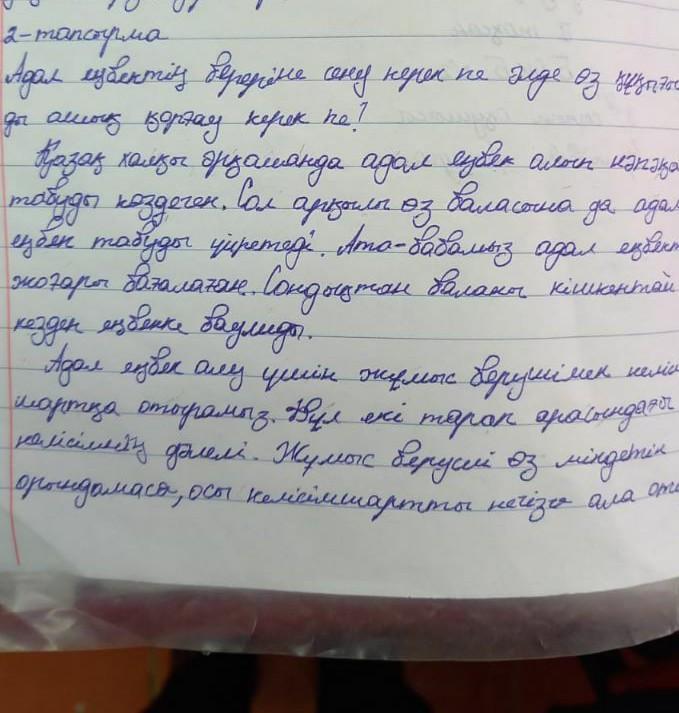 2-тапсырма
Адал еңбектің берерIне сену керек пе әлде өз құқығы
ды ашық қорғау керек пе?
Қазақ халқы әрқашанда адал еңбек алып нәпақа
табуды көздеген. Сол арқылы өз баласына да адал
еңбек табуды үйретеді. Ата-бабамыз адал еңбект
жоғары бағалаған. Сондықтан баланы кішкентай
кезден еңбекке баулиды.
Адал еңбек алу үшін жұмыс берушімен келіс
шартқа отырамыз. Бұл екі тарап арасындағы
келісімнің дәлелі. Жұмыс беруші өз міндетін
орындамаса, осы келісімшартты негізге ала оты